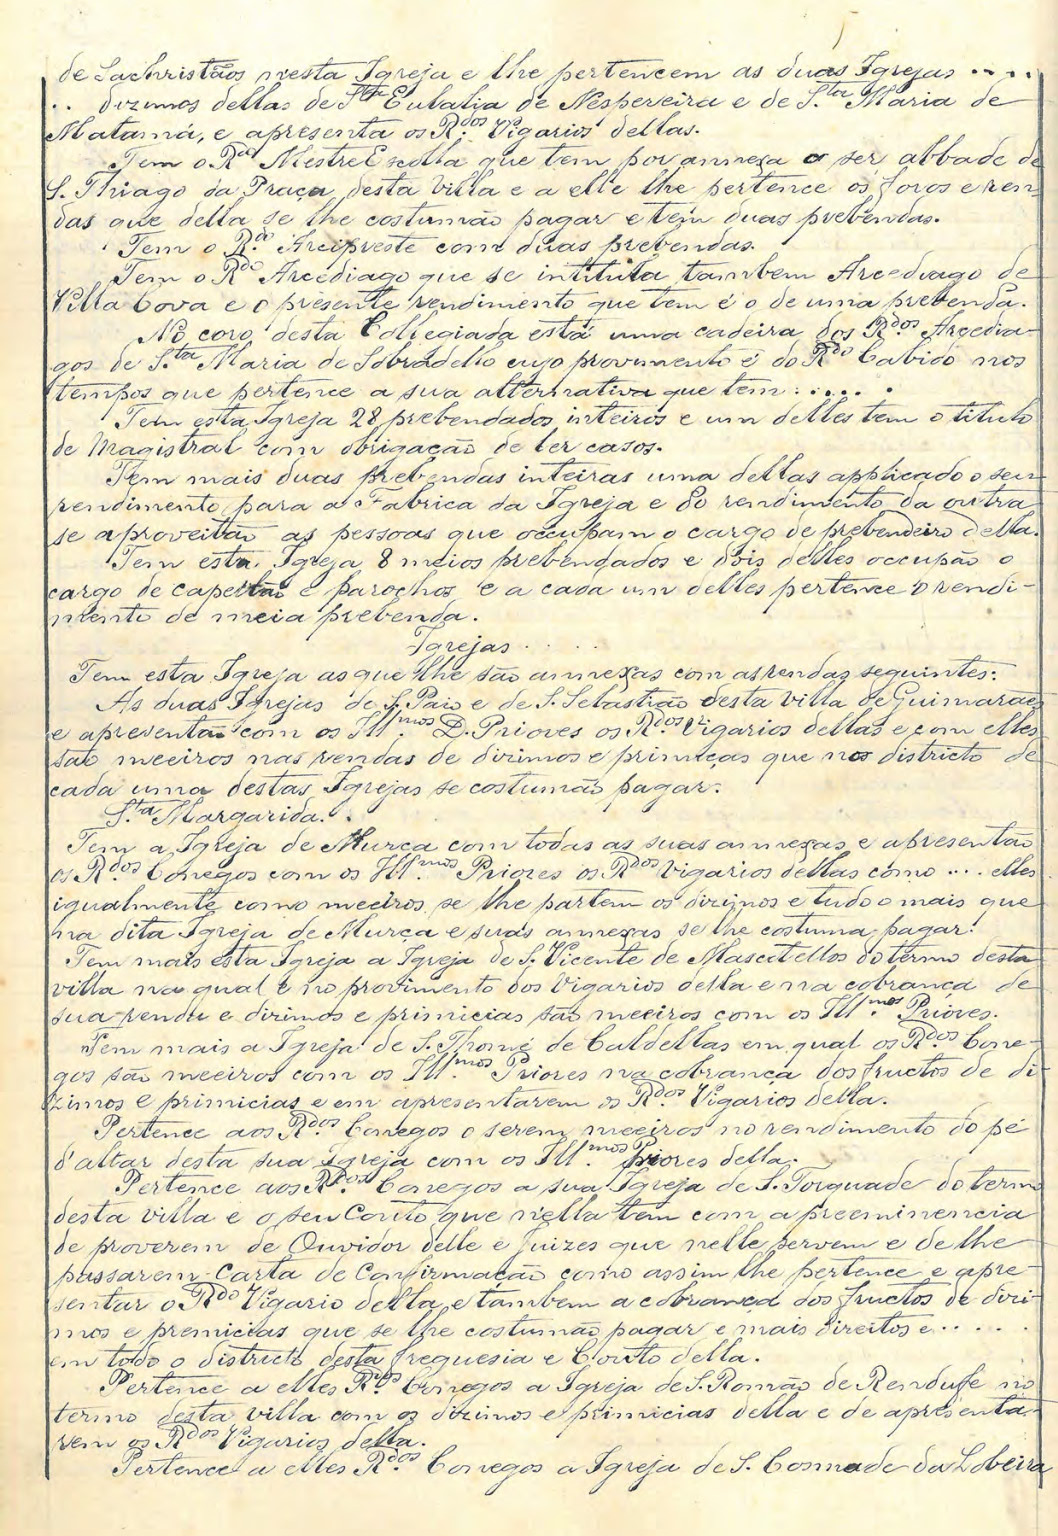 de Sachristãos nesta Igreja e lhe pertencem as duas Igrejas ....
.. dizimos dellas de Sta Eulalia de Nespereira e de S.ta Maria de
Matamá, e apresenta os R.dos Vigarios dellas.
Tem o Rdo Mestre Escolla que tem por annexa o ser abbade de
S. Thiago da Praça desta Villa e a elle lhe pertence os foros e ren-
das que della se lhe costumão pagar e tem duas prebendas.
Tem o R.do Arcipreste com duas prebendas.
Tem o Rdo Arcediago que se intitula tambem Arcediago de
Villa Cova e o presente rendimento que tem é o de uma prebenda.
No coro desta Collegiada está uma cadeira dos R.dos Arcedia-
gos de S.ta Maria de Sobradello cujo provimento é do Rdo Cabido nos
tempos que pertence a sua alternativa que tem: ....
Tem esta Igreja 28 prebendados inteiros e um delles tem o titulo
de Magistral com obrigação de ler casos.
Tem mais duas prebendas inteiras uma dellas applicado o seu
rendimento para a Fabrica da Igreja e do rendimento da outra
se aproveitão as pessoas que occupam o cargo de prebendeiro della.
Tem esta Igreja 8 meios prebendados e dois delles occupão o
cargo de capellão e parochos e a cada um delles pertence o rendi-
mento de meia prebenda.
Igrejas
Tem esta Igreja as que lhe são annexas com as rendas seguintes:
As duas Igrejas de S. Paio e de S. Sebastião desta villa de Guimarães
e apresentão com os Ill.mos D. Priores os R.dos Vigarios dellas e com elles
são meeiros nas rendas de dizimos e primiças que no districto de
cada uma destas Igrejas se costumão pagar:
S.ta Margarida.
Tem a Igreja de Murça com todas as suas annexas e apresentão
os R.dos Conegos com os Ill.mos Priores os R.dos Vigarios dellas como ... elles
igualmente como meeiros se lhe partem os dizimos e tudo o mais que
na dita Igreja de Murça e suas annexas se lhe costuma pagar.
Tem mais esta Igreja a Igreja de S. Vicente de Mascotellos do termo desta
villa na qual e no provimento dos Vigarios della e na cobrança de
sua renda e dizimos e primicias são meeiros com os Ill.mos Priores.
Tem mais a Igreja de S. Thomé de Caldellas em qual os R.dos Cone-
gos são meeiros com os Ill.mos Priores na cobrança dos fructos de di-
zimos e primicias e em apresentarem os R.dos Vigarios della.
Pertence aos R.dos Conegos o serem meeiros no rendimento do pé
d'altar desta sua Igreja com os Ill.mos Priores della.
Pertence aos R.dos Conegos a sua Igreja de S. Torquade do termo
desta villa e o seu Couto que nella tem com a preeminencia
de proverem de Ouvidor delle e juizes que nelle servem e de lhe
passarem Carta de Confirmação como assim lhe pertence e apre-
sentar o Rdo Vigario della e tambem a cobrança dos fructos de dizi-
mos e premicias que se lhe costumão pagar e mais direitos e .....
em todo o districto desta freguesia e Couto della.
Pertence a elles R.dos Conegos a Igreja de S. Romão de Rendufe no
termo desta villa com os dizimos e primicias della e de apresenta-
rem os R.dos Vigarios della.
Pertence a elles R.dos Conegos a Igreja de S. Cosmade da Lobeira